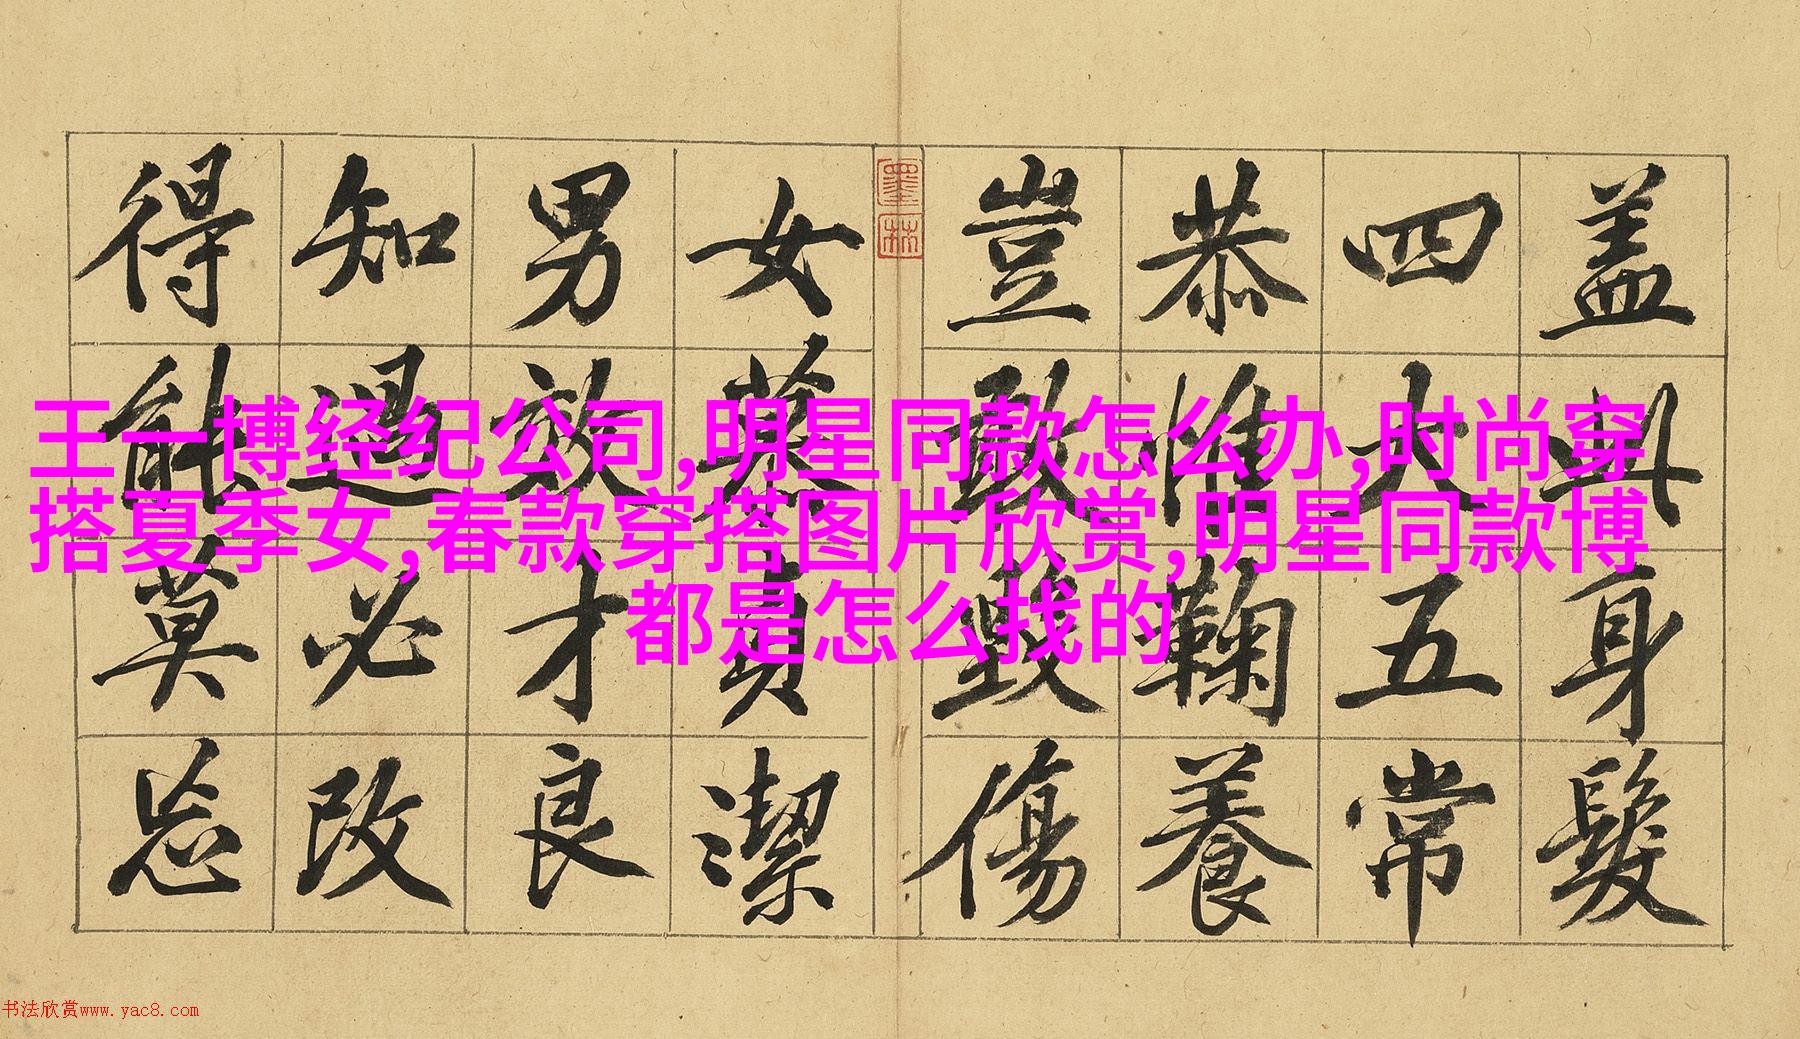 盖此身髮
四大五常
恭惟鞠養
豈敢毀傷
女慕貞潔
男效才良
知過必改
得能莫忘
墨林
王一博经纪公司,明星同款怎么办,时尚穿
搭夏季女,春款穿搭图片欣赏,明星同款博
都是怎么找的
书法欣赏www.yac8.com